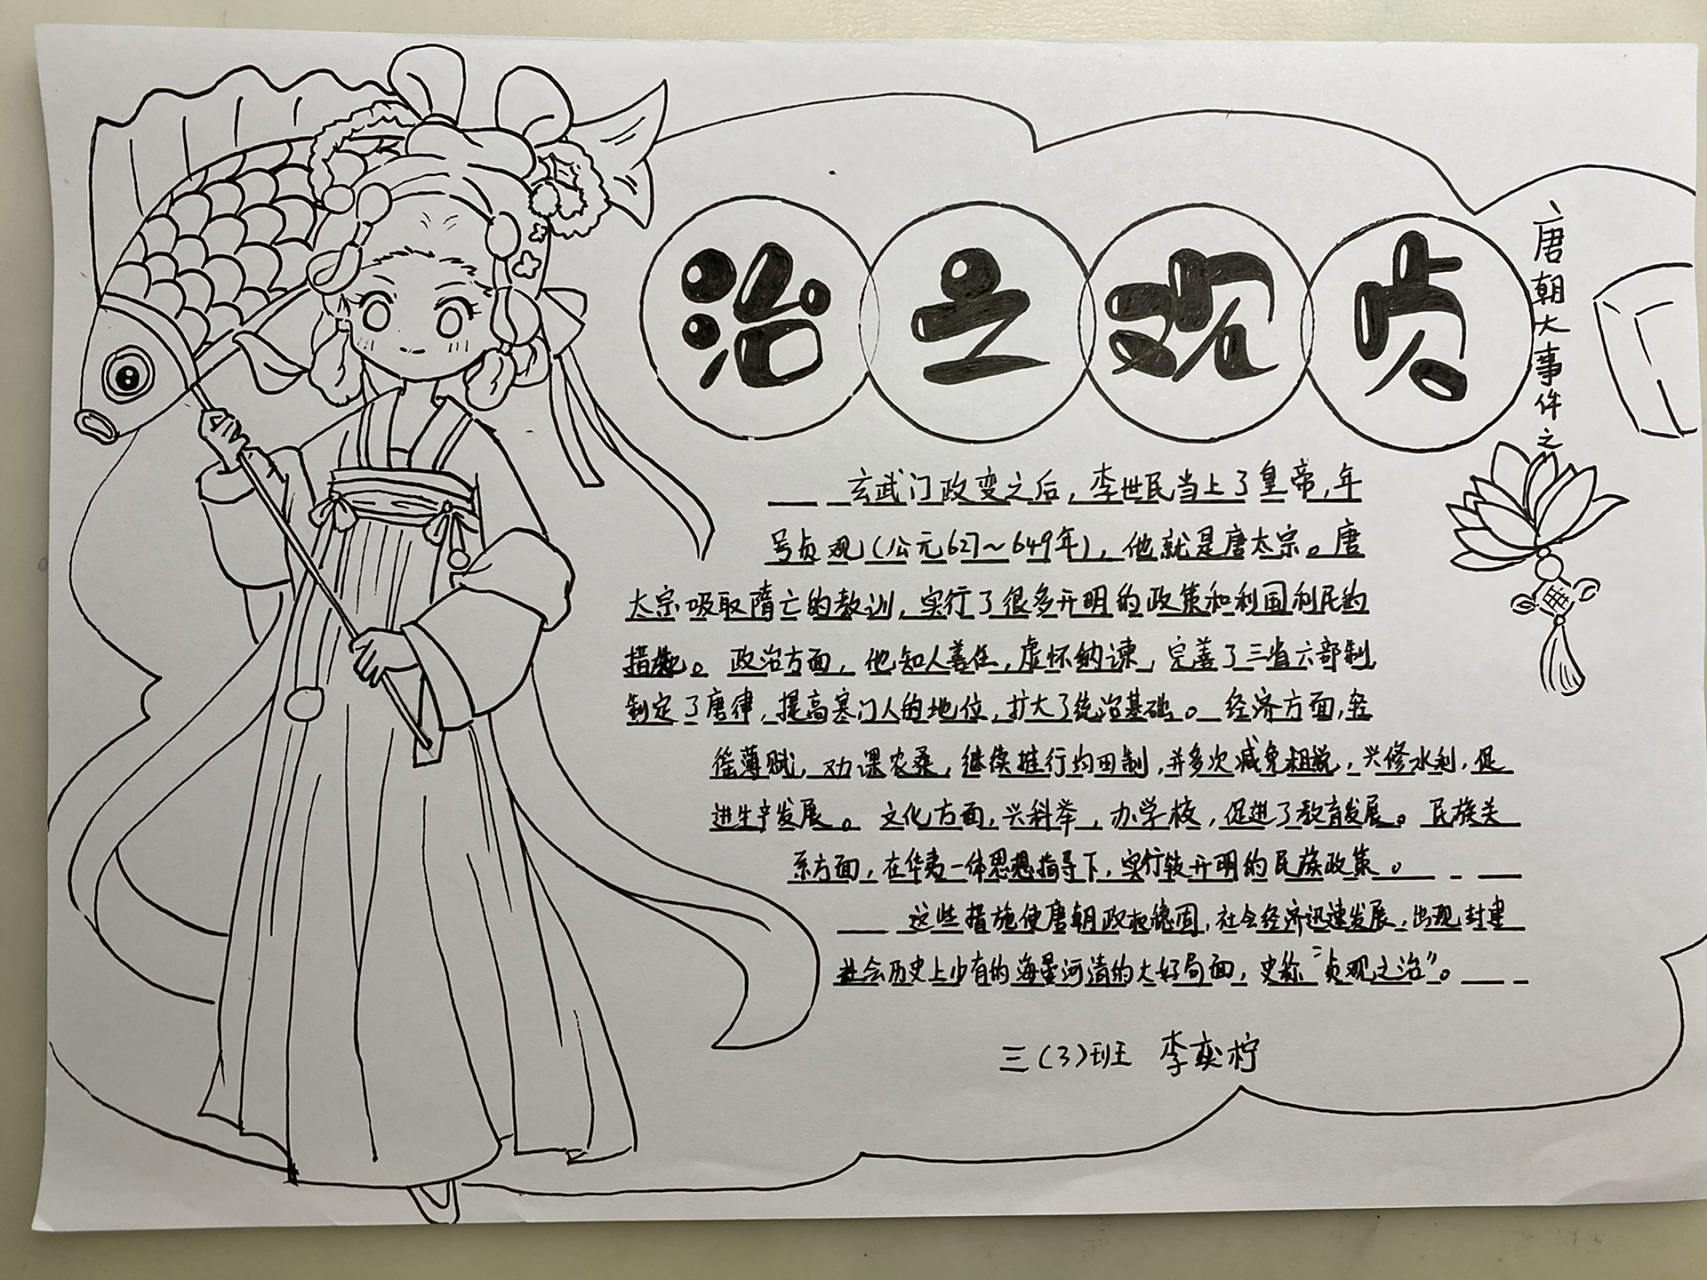 唐朝大事件之
贞观之治
玄武门政变之后，李世民当上了皇帝，年
号贞观（公元627～649年），他就是唐太宗。唐
太宗吸取隋亡的教训，实行了很多开明的政策和利国利民的
措施。政治方面，他知人善任，虚怀纳谏，完善了三省六部制
制定了唐律，提高寒门人的地位，扩大了统治基础。经济方面，轻
徭薄赋，劝课农桑，继续推行均田制，并多次减免租税，兴修水利，促
进生产发展。文化方面，兴科举，办学校，促进了教育发展。民族关
系方面，在华夷一体思想指导下，实行较开明的民族政策。
这些措施使唐朝政权稳固，社会经济迅速发展，出现封建
社会历史上少有的海晏河清的大好局面，史称“贞观之治”。
三（3）班 李奕柠